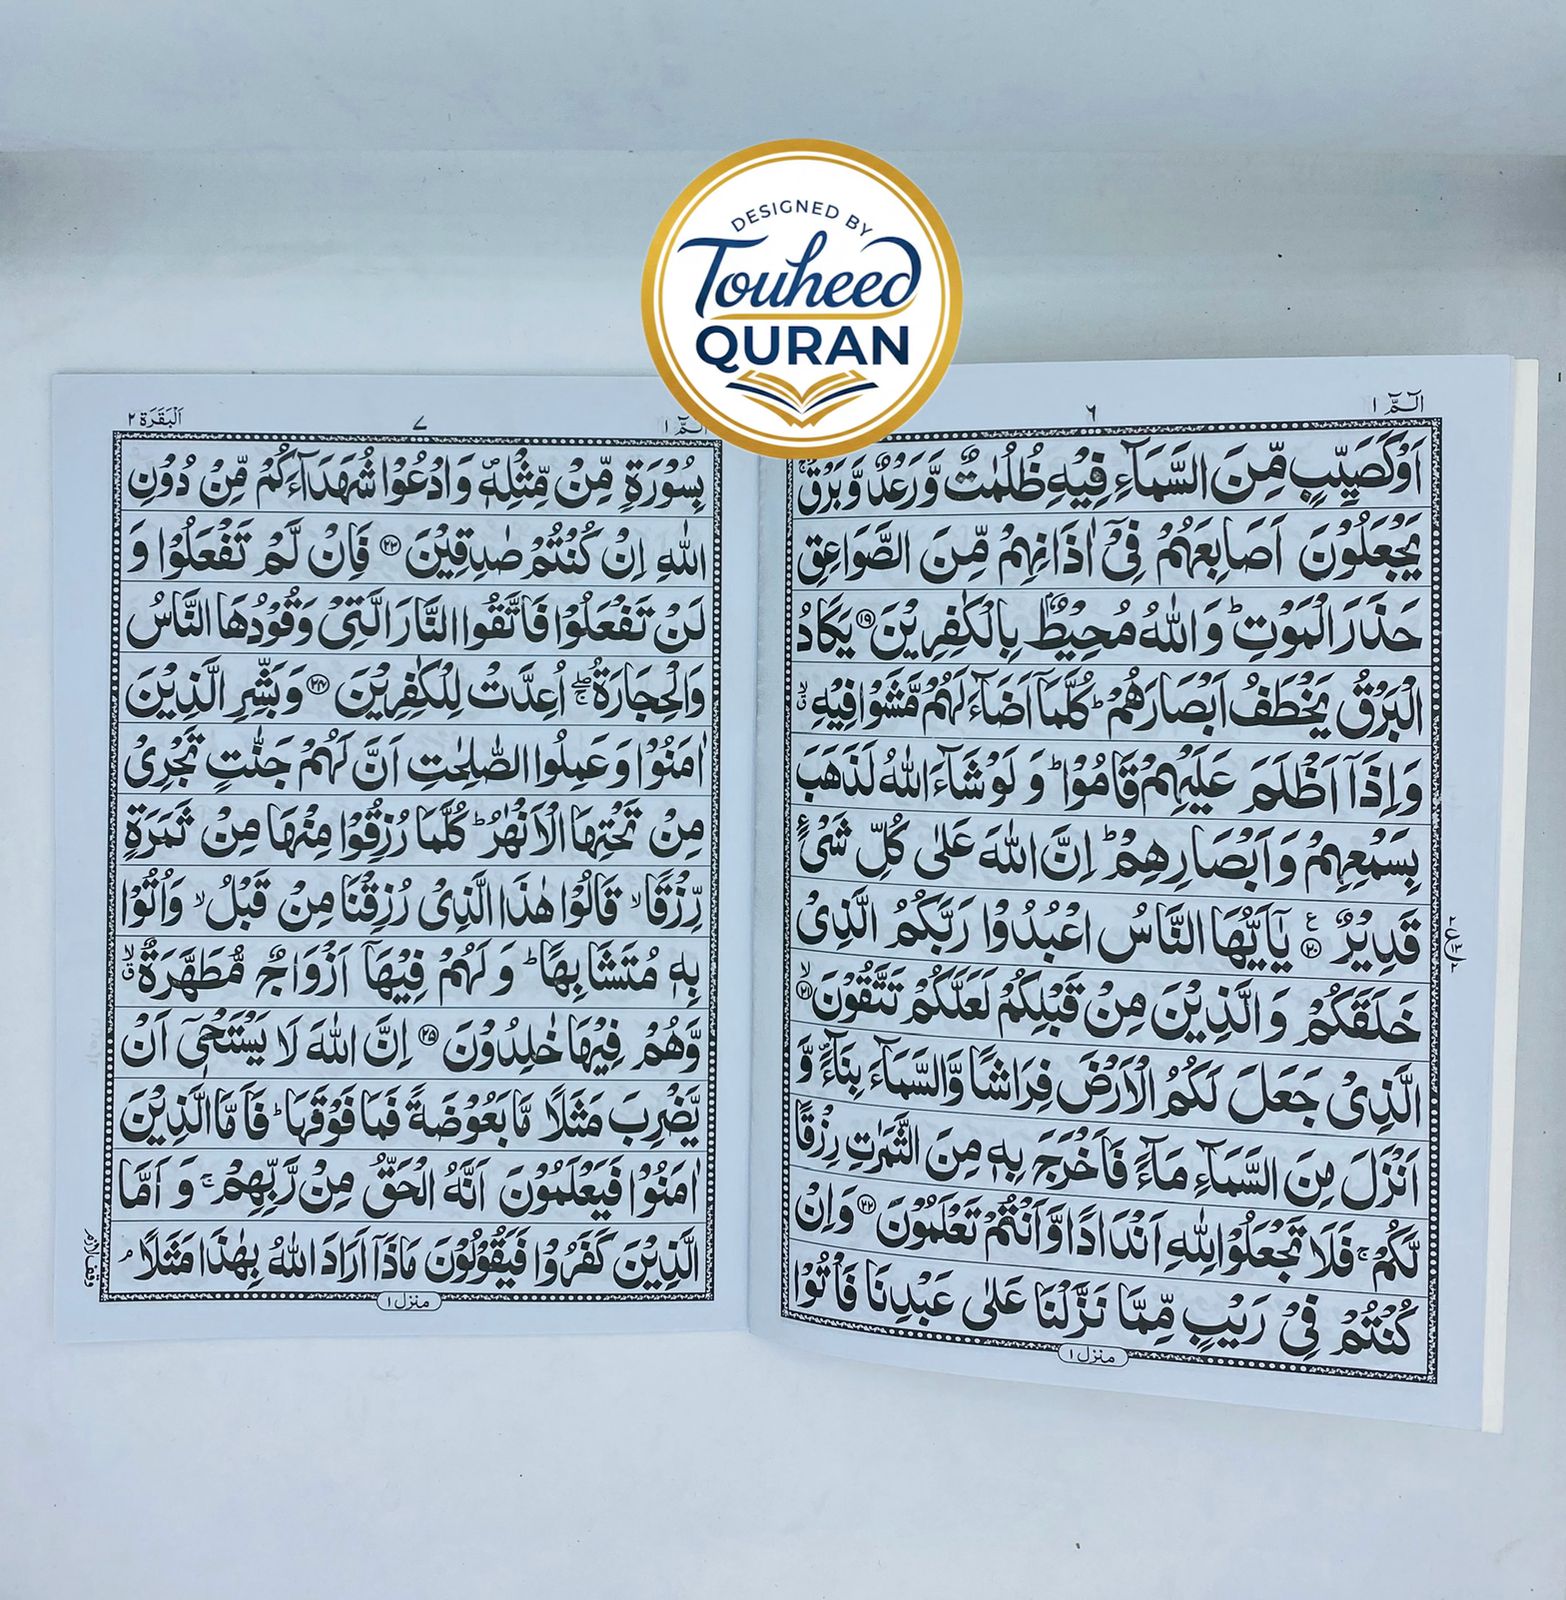 DESIGNED BY
Touheed
QURAN
الٓمّٓ ١
٦
اَوْ كَصَيِّبٍ مِّنَ السَّمَآءِ فِيْهِ ظُلُمٰتٌ وَّ رَعْدٌ وَّ بَرْقٌ ۚ
يَجْعَلُوْنَ اَصَابِعَهُمْ فِىْٓ اٰذَانِهِمْ مِّنَ الصَّوَاعِقِ
حَذَرَ الْمَوْتِ ؕ وَ اللّٰهُ مُحِيْطٌۢ بِالْكٰفِرِيْنَ ۝۱۹ يَكَادُ
الْبَرْقُ يَخْطَفُ اَبْصَارَهُمْ ؕ كُلَّمَآ اَضَآءَ لَهُمْ مَّشَوْا فِيْهِ ۙۗ
وَ اِذَآ اَظْلَمَ عَلَيْهِمْ قَامُوْا ؕ وَ لَوْ شَآءَ اللّٰهُ لَذَهَبَ
بِسَمْعِهِمْ وَ اَبْصَارِهِمْ ؕ اِنَّ اللّٰهَ عَلٰى كُلِّ شَىْءٍ
قَدِيْرٌ ۝۲۰ يٰٓاَيُّهَا النَّاسُ اعْبُدُوْا رَبَّكُمُ الَّذِىْ
خَلَقَكُمْ وَ الَّذِيْنَ مِنْ قَبْلِكُمْ لَعَلَّكُمْ تَتَّقُوْنَ ۝۲۱ ۙ
الَّذِىْ جَعَلَ لَكُمُ الْاَرْضَ فِرَاشًا وَّ السَّمَآءَ بِنَآءً ۪ وَّ
اَنْزَلَ مِنَ السَّمَآءِ مَآءً فَاَخْرَجَ بِهٖ مِنَ الثَّمَرٰتِ رِزْقًا
لَّكُمْ ۚ فَلَا تَجْعَلُوْا لِلّٰهِ اَنْدَادًا وَّ اَنْتُمْ تَعْلَمُوْنَ ۝۲۲ وَ اِنْ
كُنْتُمْ فِىْ رَيْبٍ مِّمَّا نَزَّلْنَا عَلٰى عَبْدِنَا فَاْتُوْا
منزل ١
الٓمّٓ ١
٧
اَلْبَقَرَة ٢
بِسُوْرَةٍ مِّنْ مِّثْلِهٖ ۪ وَ ادْعُوْا شُهَدَآءَكُمْ مِّنْ دُوْنِ
اللّٰهِ اِنْ كُنْتُمْ صٰدِقِيْنَ ۝۲۳ فَاِنْ لَّمْ تَفْعَلُوْا وَ
لَنْ تَفْعَلُوْا فَاتَّقُوا النَّارَ الَّتِىْ وَقُوْدُهَا النَّاسُ
وَ الْحِجَارَةُ ۖۚ اُعِدَّتْ لِلْكٰفِرِيْنَ ۝۲۴ وَ بَشِّرِ الَّذِيْنَ
اٰمَنُوْا وَ عَمِلُوا الصّٰلِحٰتِ اَنَّ لَهُمْ جَنّٰتٍ تَجْرِىْ
مِنْ تَحْتِهَا الْاَنْهٰرُ ؕ كُلَّمَا رُزِقُوْا مِنْهَا مِنْ ثَمَرَةٍ
رِّزْقًا ۙ قَالُوْا هٰذَا الَّذِىْ رُزِقْنَا مِنْ قَبْلُ ۙ وَ اُتُوْا
بِهٖ مُتَشَابِهًا ؕ وَ لَهُمْ فِيْهَآ اَزْوَاجٌ مُّطَهَّرَةٌ ۙۗ
وَّ هُمْ فِيْهَا خٰلِدُوْنَ ۝۲۵ اِنَّ اللّٰهَ لَا يَسْتَحْىٖٓ اَنْ
يَّضْرِبَ مَثَلًا مَّا بَعُوْضَةً فَمَا فَوْقَهَا ؕ فَاَمَّا الَّذِيْنَ
اٰمَنُوْا فَيَعْلَمُوْنَ اَنَّهُ الْحَقُّ مِنْ رَّبِّهِمْ ۚ وَ اَمَّا
الَّذِيْنَ كَفَرُوْا فَيَقُوْلُوْنَ مَاذَآ اَرَادَ اللّٰهُ بِهٰذَا مَثَلًا ۘ
وقف لازم
منزل ١